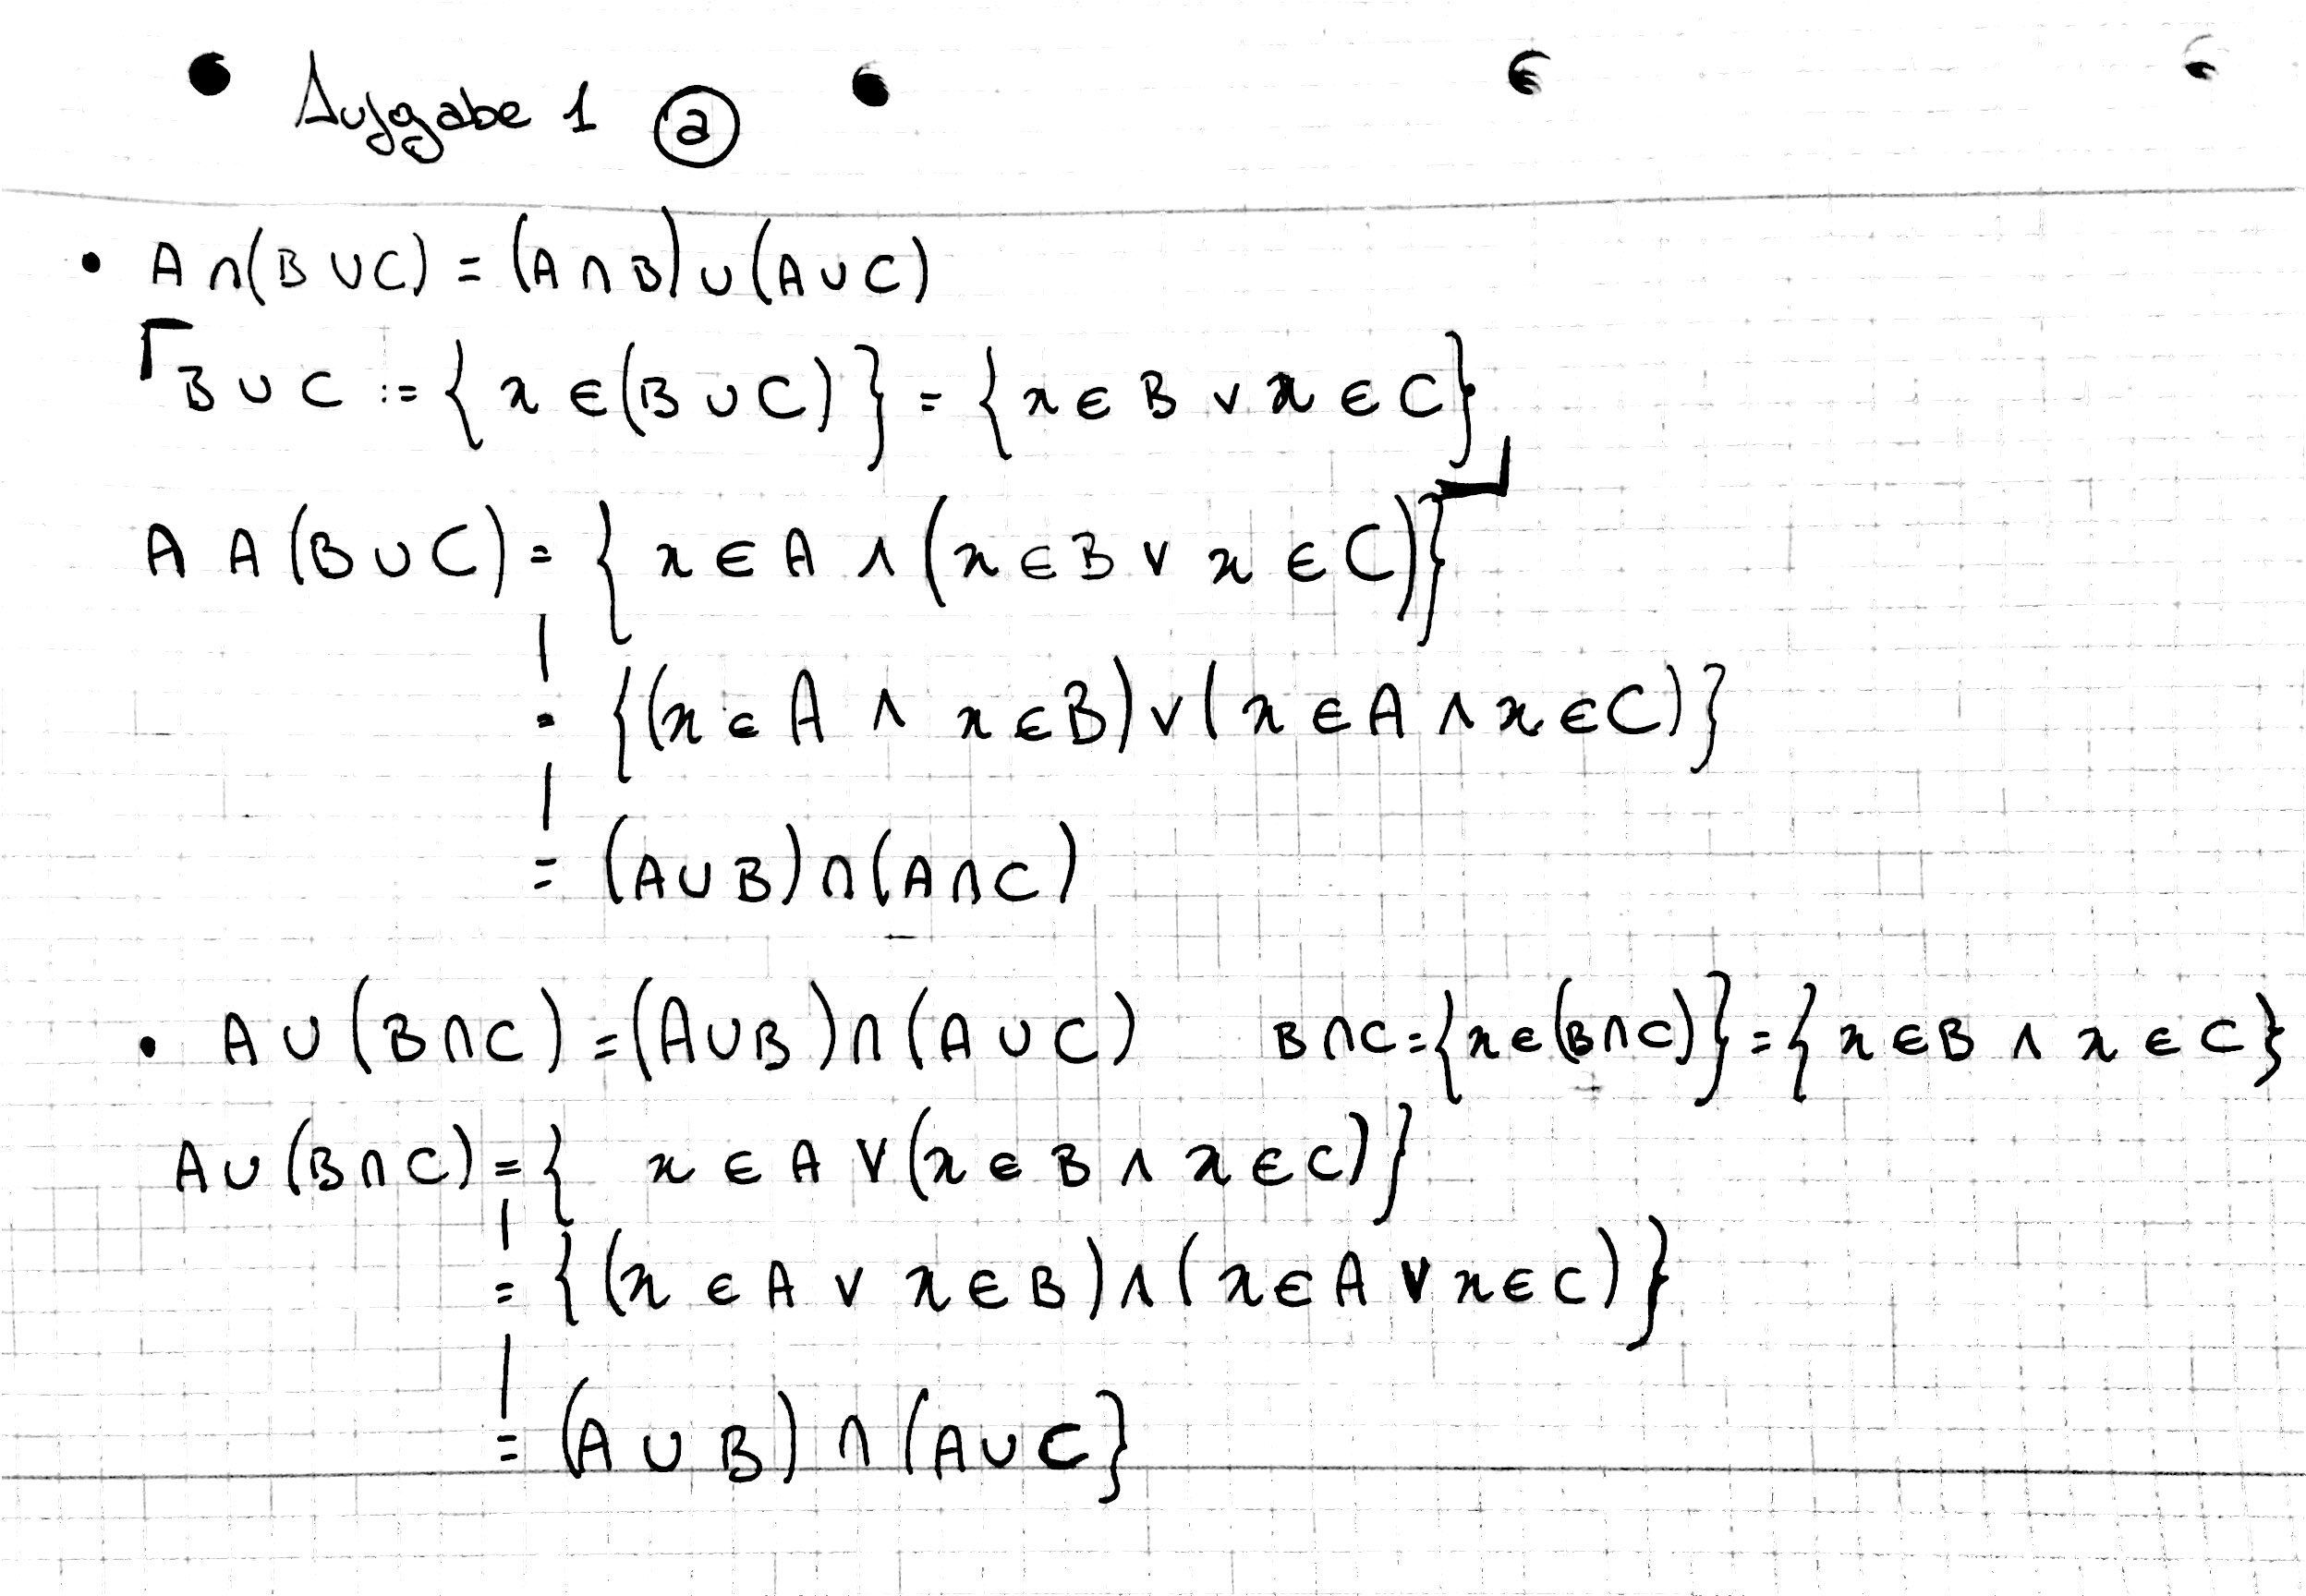 Aufgabe 1 a
• A∩(B∪C) = (A∩B)∪(A∪C)
B∪C := {x∈(B∪C)} = {x∈B ∨ x∈C}
A A (B∪C) = {x∈A ∧ (x∈B ∨ x∈C)}
= {(x∈A ∧ x∈B)∨(x∈A ∧ x∈C)}
= (A∪B)∩(A∩C)
• A∪(B∩C) = (A∪B)∩(A∪C) B∩C = {x∈(B∩C)} = {x∈B ∧ x∈C}
A∪(B∩C) = {x∈A ∨ (x∈B ∧ x∈C)}
= {(x∈A ∨ x∈B)∧(x∈A ∨ x∈C)}
= (A∪B)∩(A∪C}